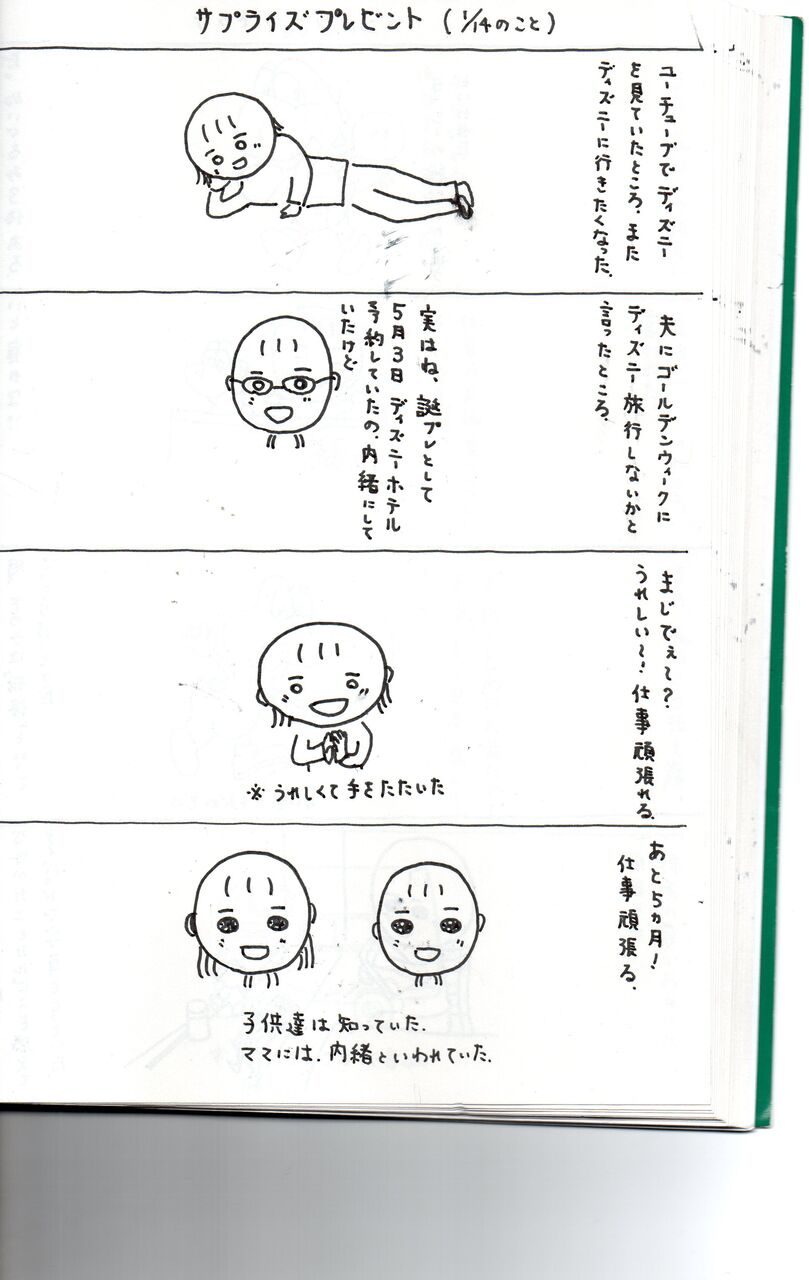 サプライズプレゼント（1/14のこと）
ユーチューブでディズニー
を見ていたところ、また
ディズニーに行きたくなった。
夫にゴールデンウィークに
ディズニー旅行しないかと
言ったところ、
実はね、誕プレとして
5月3日 ディズニーホテル
予約していたの、内緒にして
いたけど
まじでぇ～？
うれしい～！仕事頑張れる。
※うれしくて手をたたいた
あと5ヵ月！
仕事頑張る。
子供達は知っていた。
ママには、内緒といわれていた。